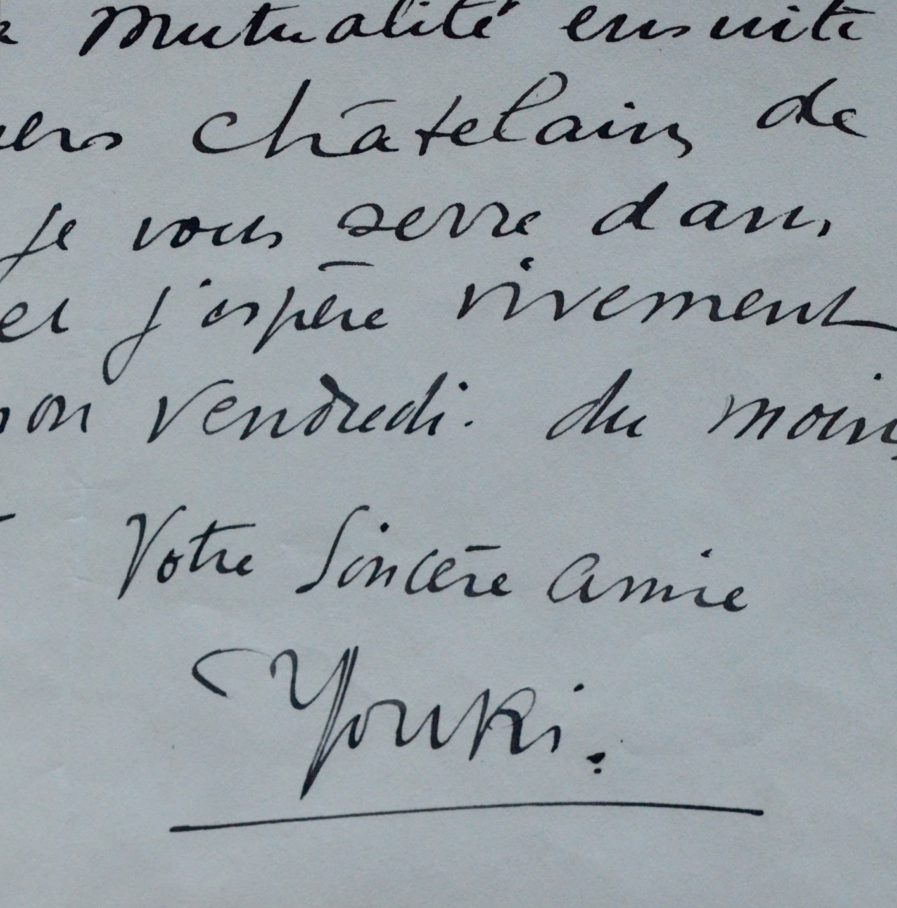 Mutualité ensuite
chers Châtelain, de
je vous serre dans
et j'espère vivement
non vendredi. du moins
Votre Sincère amie
Youki.